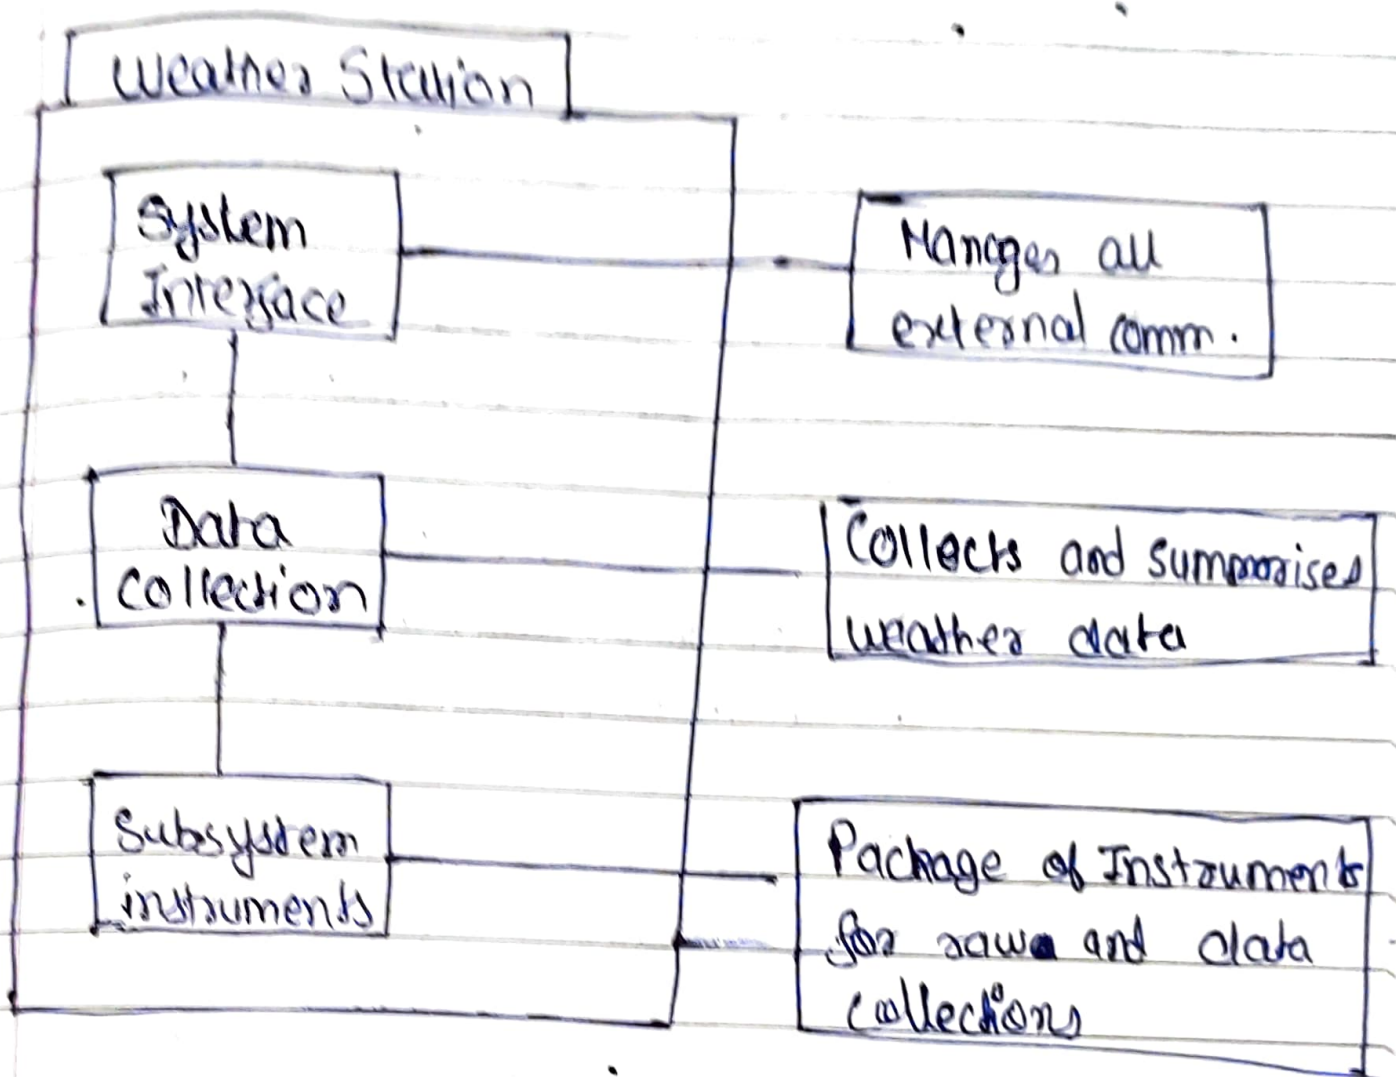 Weather Station
System
Interface
Manages all
external comm.
Data
Collection
Collects and summarises
weather data
Subsystem
instruments
Package of Instruments
for raw and data
collections